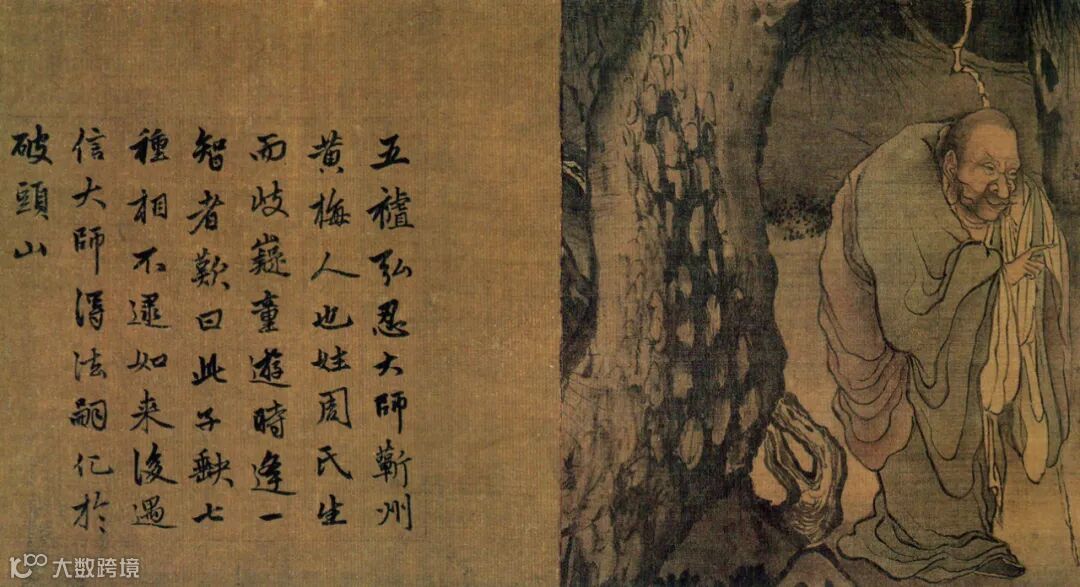 五禮弘忍大師蘄州
黄梅人也姓周氏生
而岐嶷童遊時逢一
智者歎曰此子缺七
種相不逮如来後遇
信大師得法嗣化於
破頭山
大数跨境